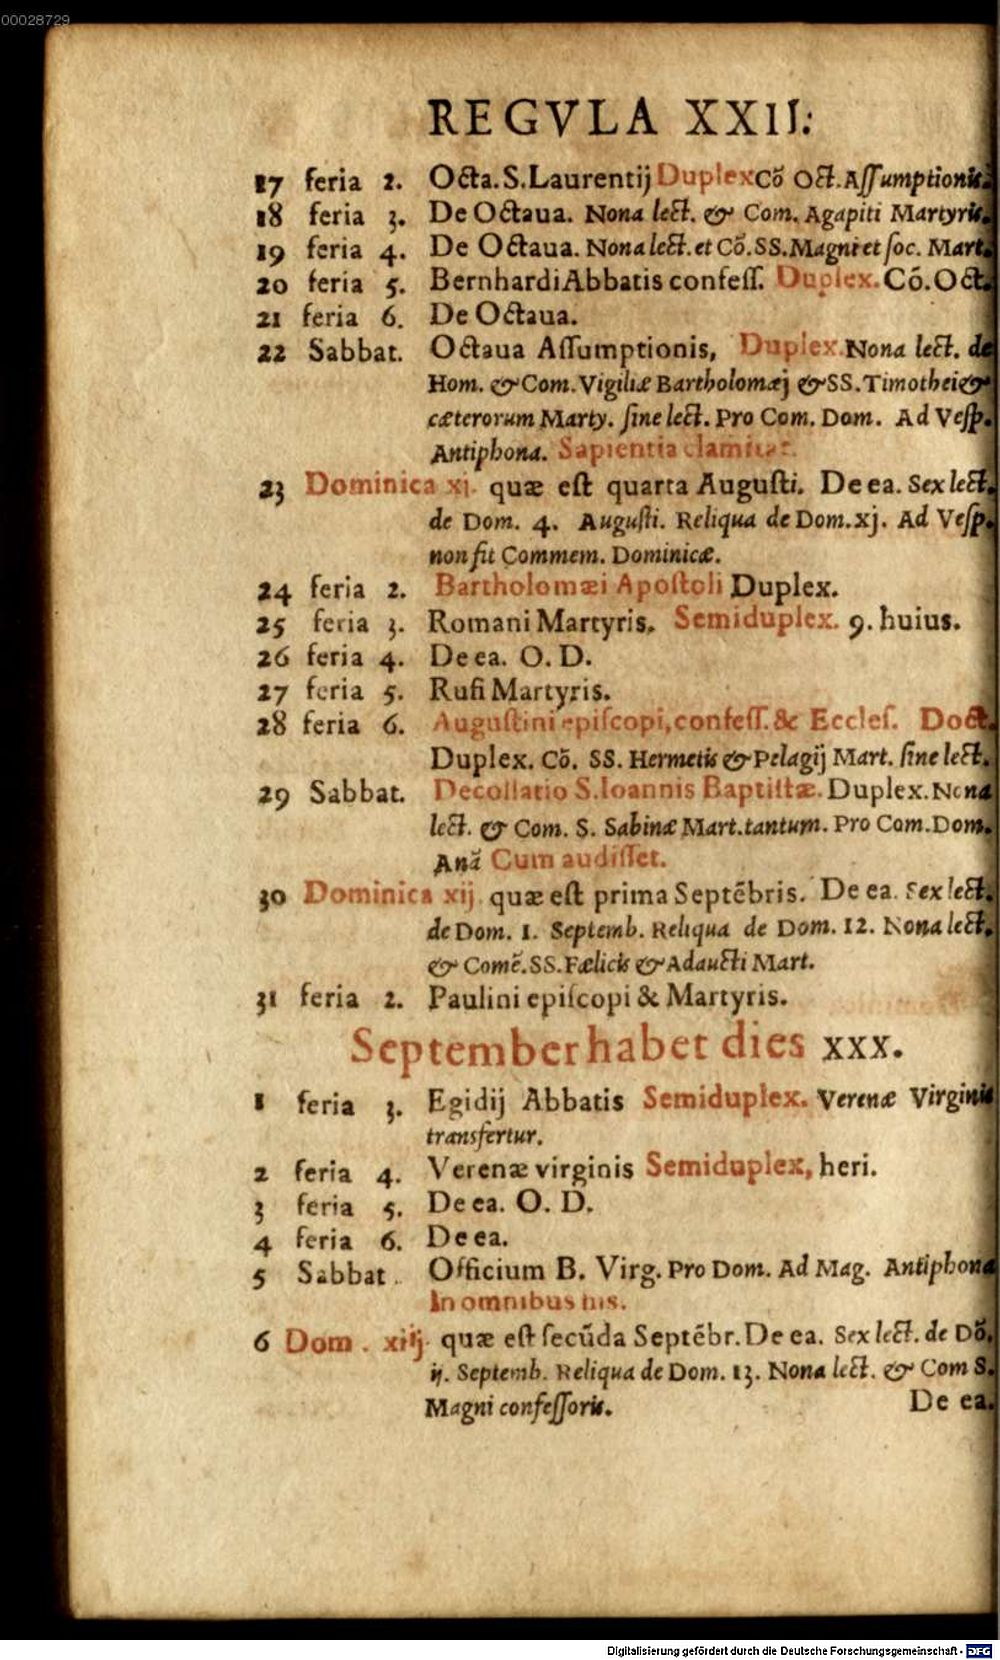 00028729
REGVLA XXII.
17 feria 2. Octa. S. Laurentij Duplex Cō Oct. Aſſumptionis.
18 feria 3. De Octaua. Nona lect. & Com. Agapiti Martyris.
19 feria 4. De Octaua. Nona lect. et Cō. SS. Magni et ſoc. Mart.
20 feria 5. Bernhardi Abbatis confeſſ. Duplex. Cō. Oct.
21 feria 6. De Octaua.
22 Sabbat. Octaua Aſſumptionis, Duplex. Nona lect. de
Hom. & Com. Vigiliæ Bartholomæj & SS. Timothei &
cæterorum Marty. ſine lect. Pro Com. Dom. Ad Veſp.
Antiphona. Sapientia clamitat.
23 Dominica xj. quæ eſt quarta Auguſti. De ea. Sex lect.
de Dom. 4. Auguſti. Reliqua de Dom. xj. Ad Veſp.
non fit Commem. Dominicæ.
24 feria 2. Bartholomæi Apoſtoli Duplex.
25 feria 3. Romani Martyris. Semiduplex. 9. huius.
26 feria 4. De ea. O. D.
27 feria 5. Rufi Martyris.
28 feria 6. Auguſtini epiſcopi, confeſſ. & Eccleſ. Doct.
Duplex. Cō. SS. Hermetis & Pelagij Mart. ſine lect.
29 Sabbat. Decollatio S. Ioannis Baptiſtæ. Duplex. Nona
lect. & Com. S. Sabinæ Mart. tantum. Pro Com. Dom.
Anā Cum audiſſet.
30 Dominica xij. quæ eſt prima Septēbris. De ea. Sex lect.
de Dom. 1. Septemb. Reliqua de Dom. 12. Nona lect.
& Comē. SS. Fælicis & Adaucti Mart.
31 feria 2. Paulini epiſcopi & Martyris.
September habet dies xxx.
1 feria 3. Egidij Abbatis Semiduplex. Verenæ Virginis
transfertur.
2 feria 4. Verenæ virginis Semiduplex, heri.
3 feria 5. De ea. O. D.
4 feria 6. De ea.
5 Sabbat. Officium B. Virg. Pro Dom. Ad Mag. Antiphona
In omnibus his.
6 Dom. xiij. quæ eſt ſecūda Septēbr. De ea. Sex lect. de Dō.
ij. Septemb. Reliqua de Dom. 13. Nona lect. & Com S.
Magni confeſſoris.
De ea.
Digitalisierung gefördert durch die Deutsche Forschungsgemeinschaft - DFG